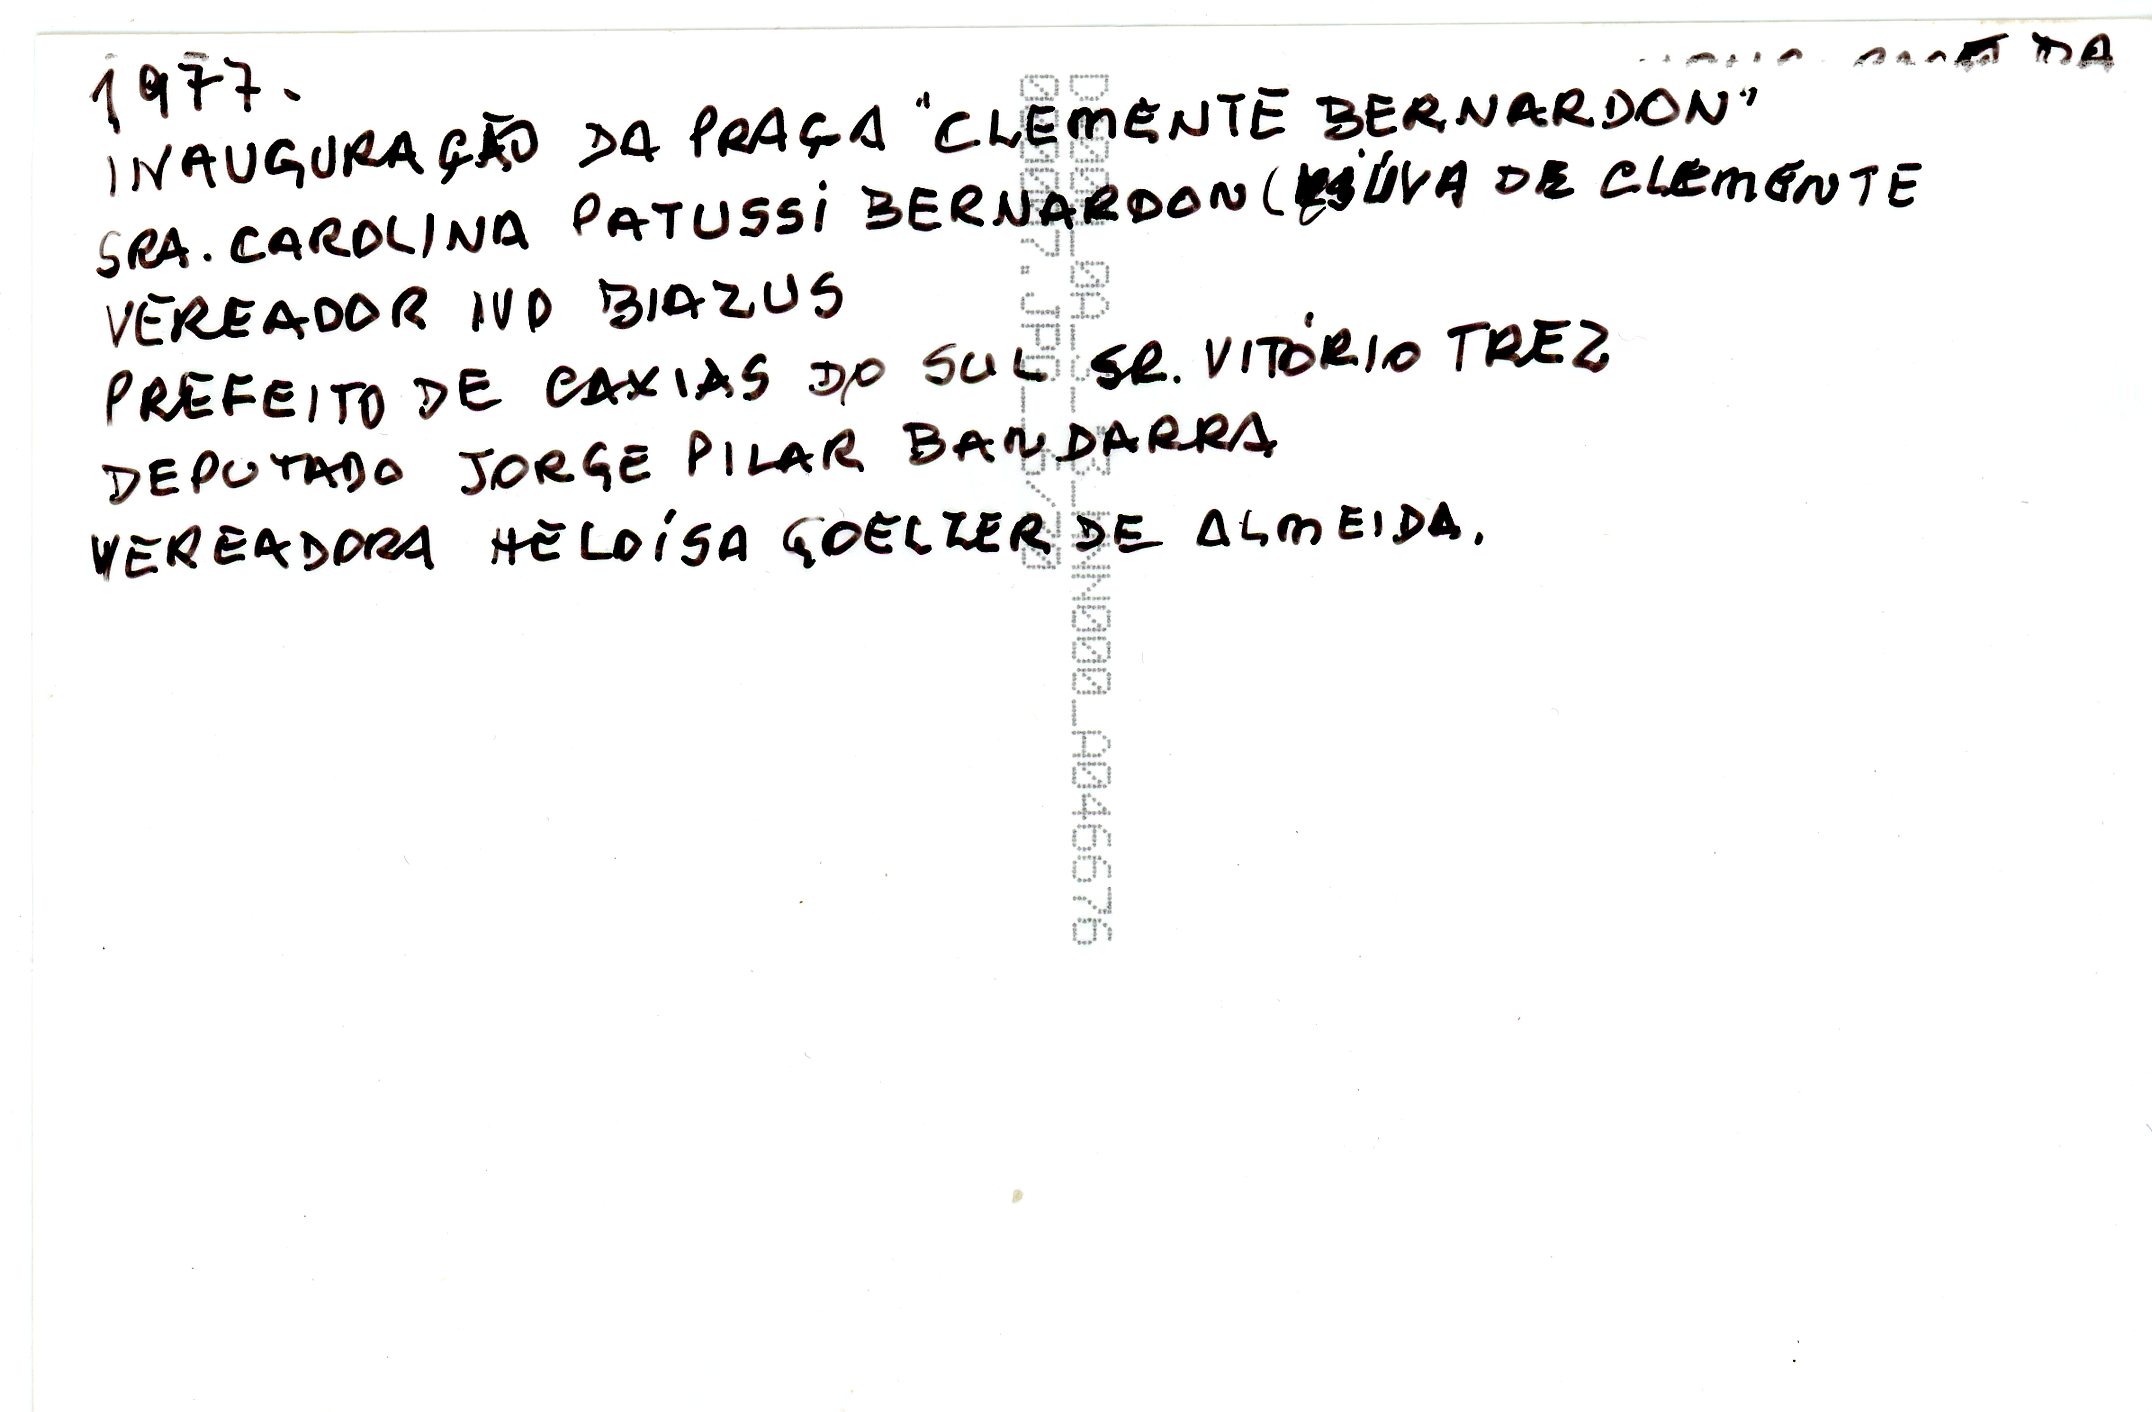 DA
1977.
INAUGURAÇÃO DA PRAÇA "CLEMENTE BERNARDON"
SRA. CAROLINA PATUSSI BERNARDON (VIÚVA DE CLEMENTE
VEREADOR IVO BIAZUS
PREFEITO DE CAXIAS DO SUL SR. VITÓRIO TREZ
DEPUTADO JORGE PILAR BANDARRA
VEREADORA HELOÍSA GOELZER DE ALMEIDA.